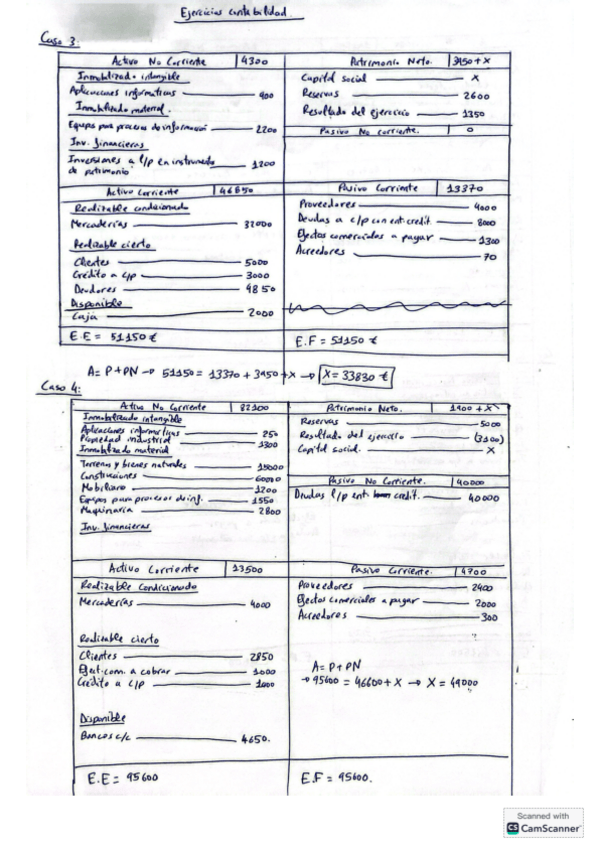 Ejercicios contabilidad
Caso 3:
Activo No Corriente 4300
Inmobilizado intangible
Aplicaciones informáticas 900
Inmobilizado material.
Equipos para procesos de información 2200
Inv. financieras
Inversiones a l/p en instrumento 1200
de patrimonio
Patrimonio Neto. 3950 + x
Capital social x
Reservas 2600
Resultado del ejercicio 1350
Pasivo No corriente. 0
Activo corriente 46850
Realizable condicionado
Mercaderías 32000
Realizable cierto
Clientes 5000
Crédito a c/p 3000
Deudores 9850
Disponible
Caja 2000
E.E = 51150 €
Pasivo Corriente 13370
Proveedores 4000
Deudas a c/p con ent. credit. 8000
Efectos comerciales a pagar 1300
Acreedores 70
E.F = 51150 €
A = P + PN → 51150 = 13370 + 3950 + x → x = 33830 €
Caso 4:
Activo No Corriente 82100
Inmobilizado intangible
Aplicaciones informáticas 250
Propiedad industrial 1300
Inmobilizado material
Terrenos y bienes naturales 15000
Construcciones 60000
Mobiliario 1200
Equipos para procesos de inf. 1550
Maquinaria 2800
Inv. financieras
Patrimonio Neto. 1900 + x
Reservas 5000
Resultado del ejercicio (3100)
Capital social. x
Pasivo No Corriente. 40000
Deudas l/p ent. credit. 40000
Activo Corriente 13500
Realizable Condicionado
Mercaderías 4000
Realizable cierto
Clientes 2850
Efect. com. a cobrar 1000
Crédito a c/p 1000
Disponible
Bancos c/c 4650.
E.E = 95600
Pasivo Corriente. 4700
Proveedores 2400
Efectos comerciales a pagar 2000
Acreedores 300
A = P + PN
→ 95600 = 46600 + x → x = 49000
E.F = 95600.
Scanned with
CS CamScanner